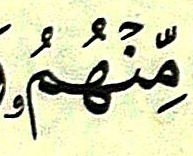 مِّنۡهُمُۥ